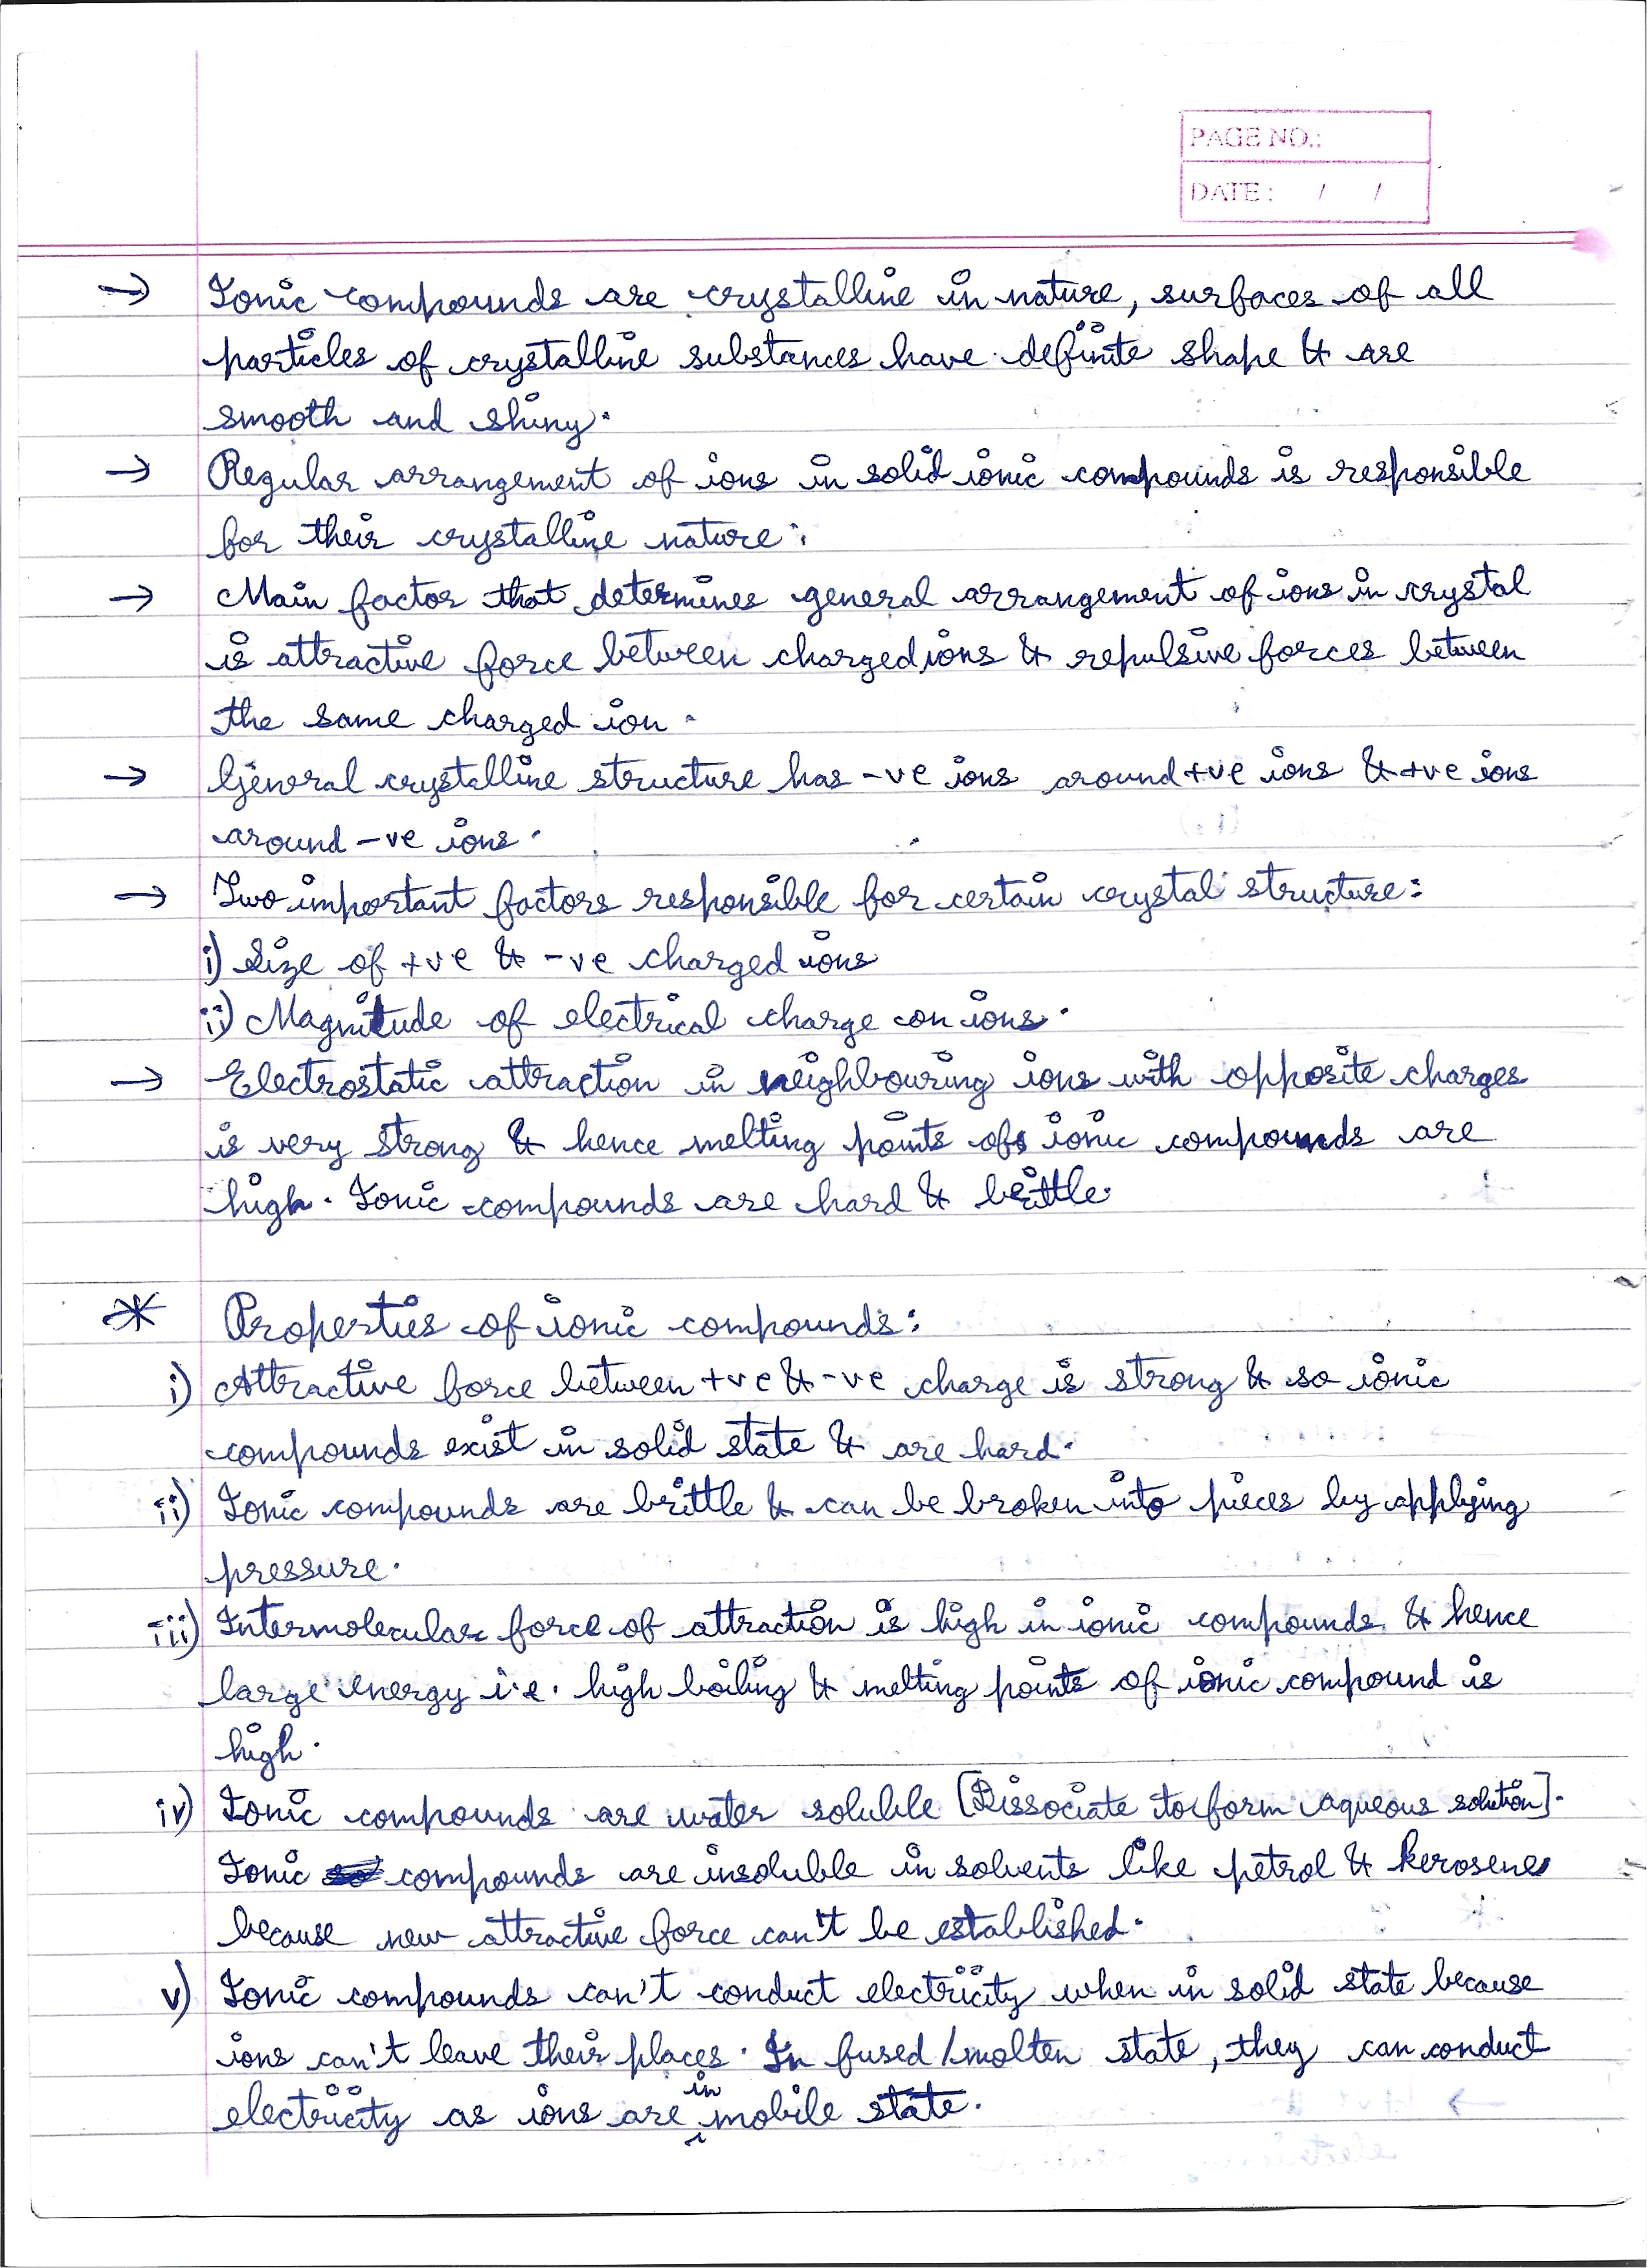 PAGE NO.:
DATE: / /
→ Ionic compounds are crystalline in nature, surfaces of all
particles of crystalline substances have definite shape & are
smooth and shiny.
→ Regular arrangement of ions in solid ionic compounds is responsible
for their crystalline nature.
→ Main factor that determines general arrangement of ions in crystal
is attractive force between charged ions & repulsive forces between
the same charged ion.
→ General crystalline structure has -ve ions around +ve ions & +ve ions
around -ve ions.
→ Two important factors responsible for certain crystal structure:
i) Size of +ve & -ve charged ions
ii) Magnitude of electrical charge on ions.
→ Electrostatic attraction in neighbouring ions with opposite charges
is very strong & hence melting points of ionic compounds are
high. Ionic compounds are hard & brittle.
* Properties of ionic compounds:
i) Attractive force between +ve & -ve charge is strong & so ionic
compounds exist in solid state & are hard.
ii) Ionic compounds are brittle & can be broken into pieces by applying
pressure.
iii) Intermolecular force of attraction is high in ionic compounds & hence
large energy i.e. high boiling & melting points of ionic compound is
high.
iv) Ionic compounds are water soluble [Dissociate to form aqueous solution].
Ionic compounds are insoluble in solvents like petrol & kerosene
because new attractive force can't be established.
v) Ionic compounds can't conduct electricity when in solid state because
ions can't leave their places. In fused/molten state, they can conduct
electricity as ions are in mobile state.